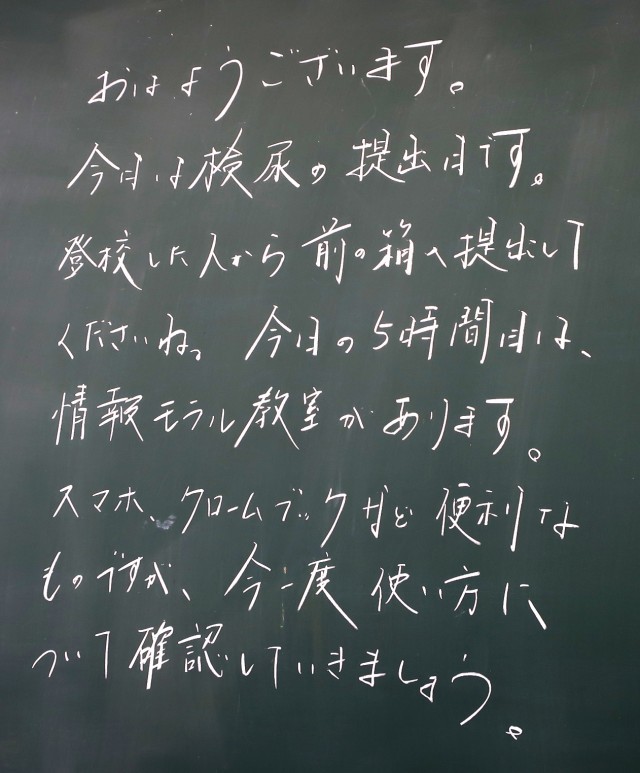 おはようございます。
今日は検尿の提出日です。
登校した人から前の箱へ提出して
くださいね。今日の5時間目は、
情報モラル教室があります。
スマホ、クロームブックなど便利な
ものですが、今一度使い方に
ついて確認していきましょう。